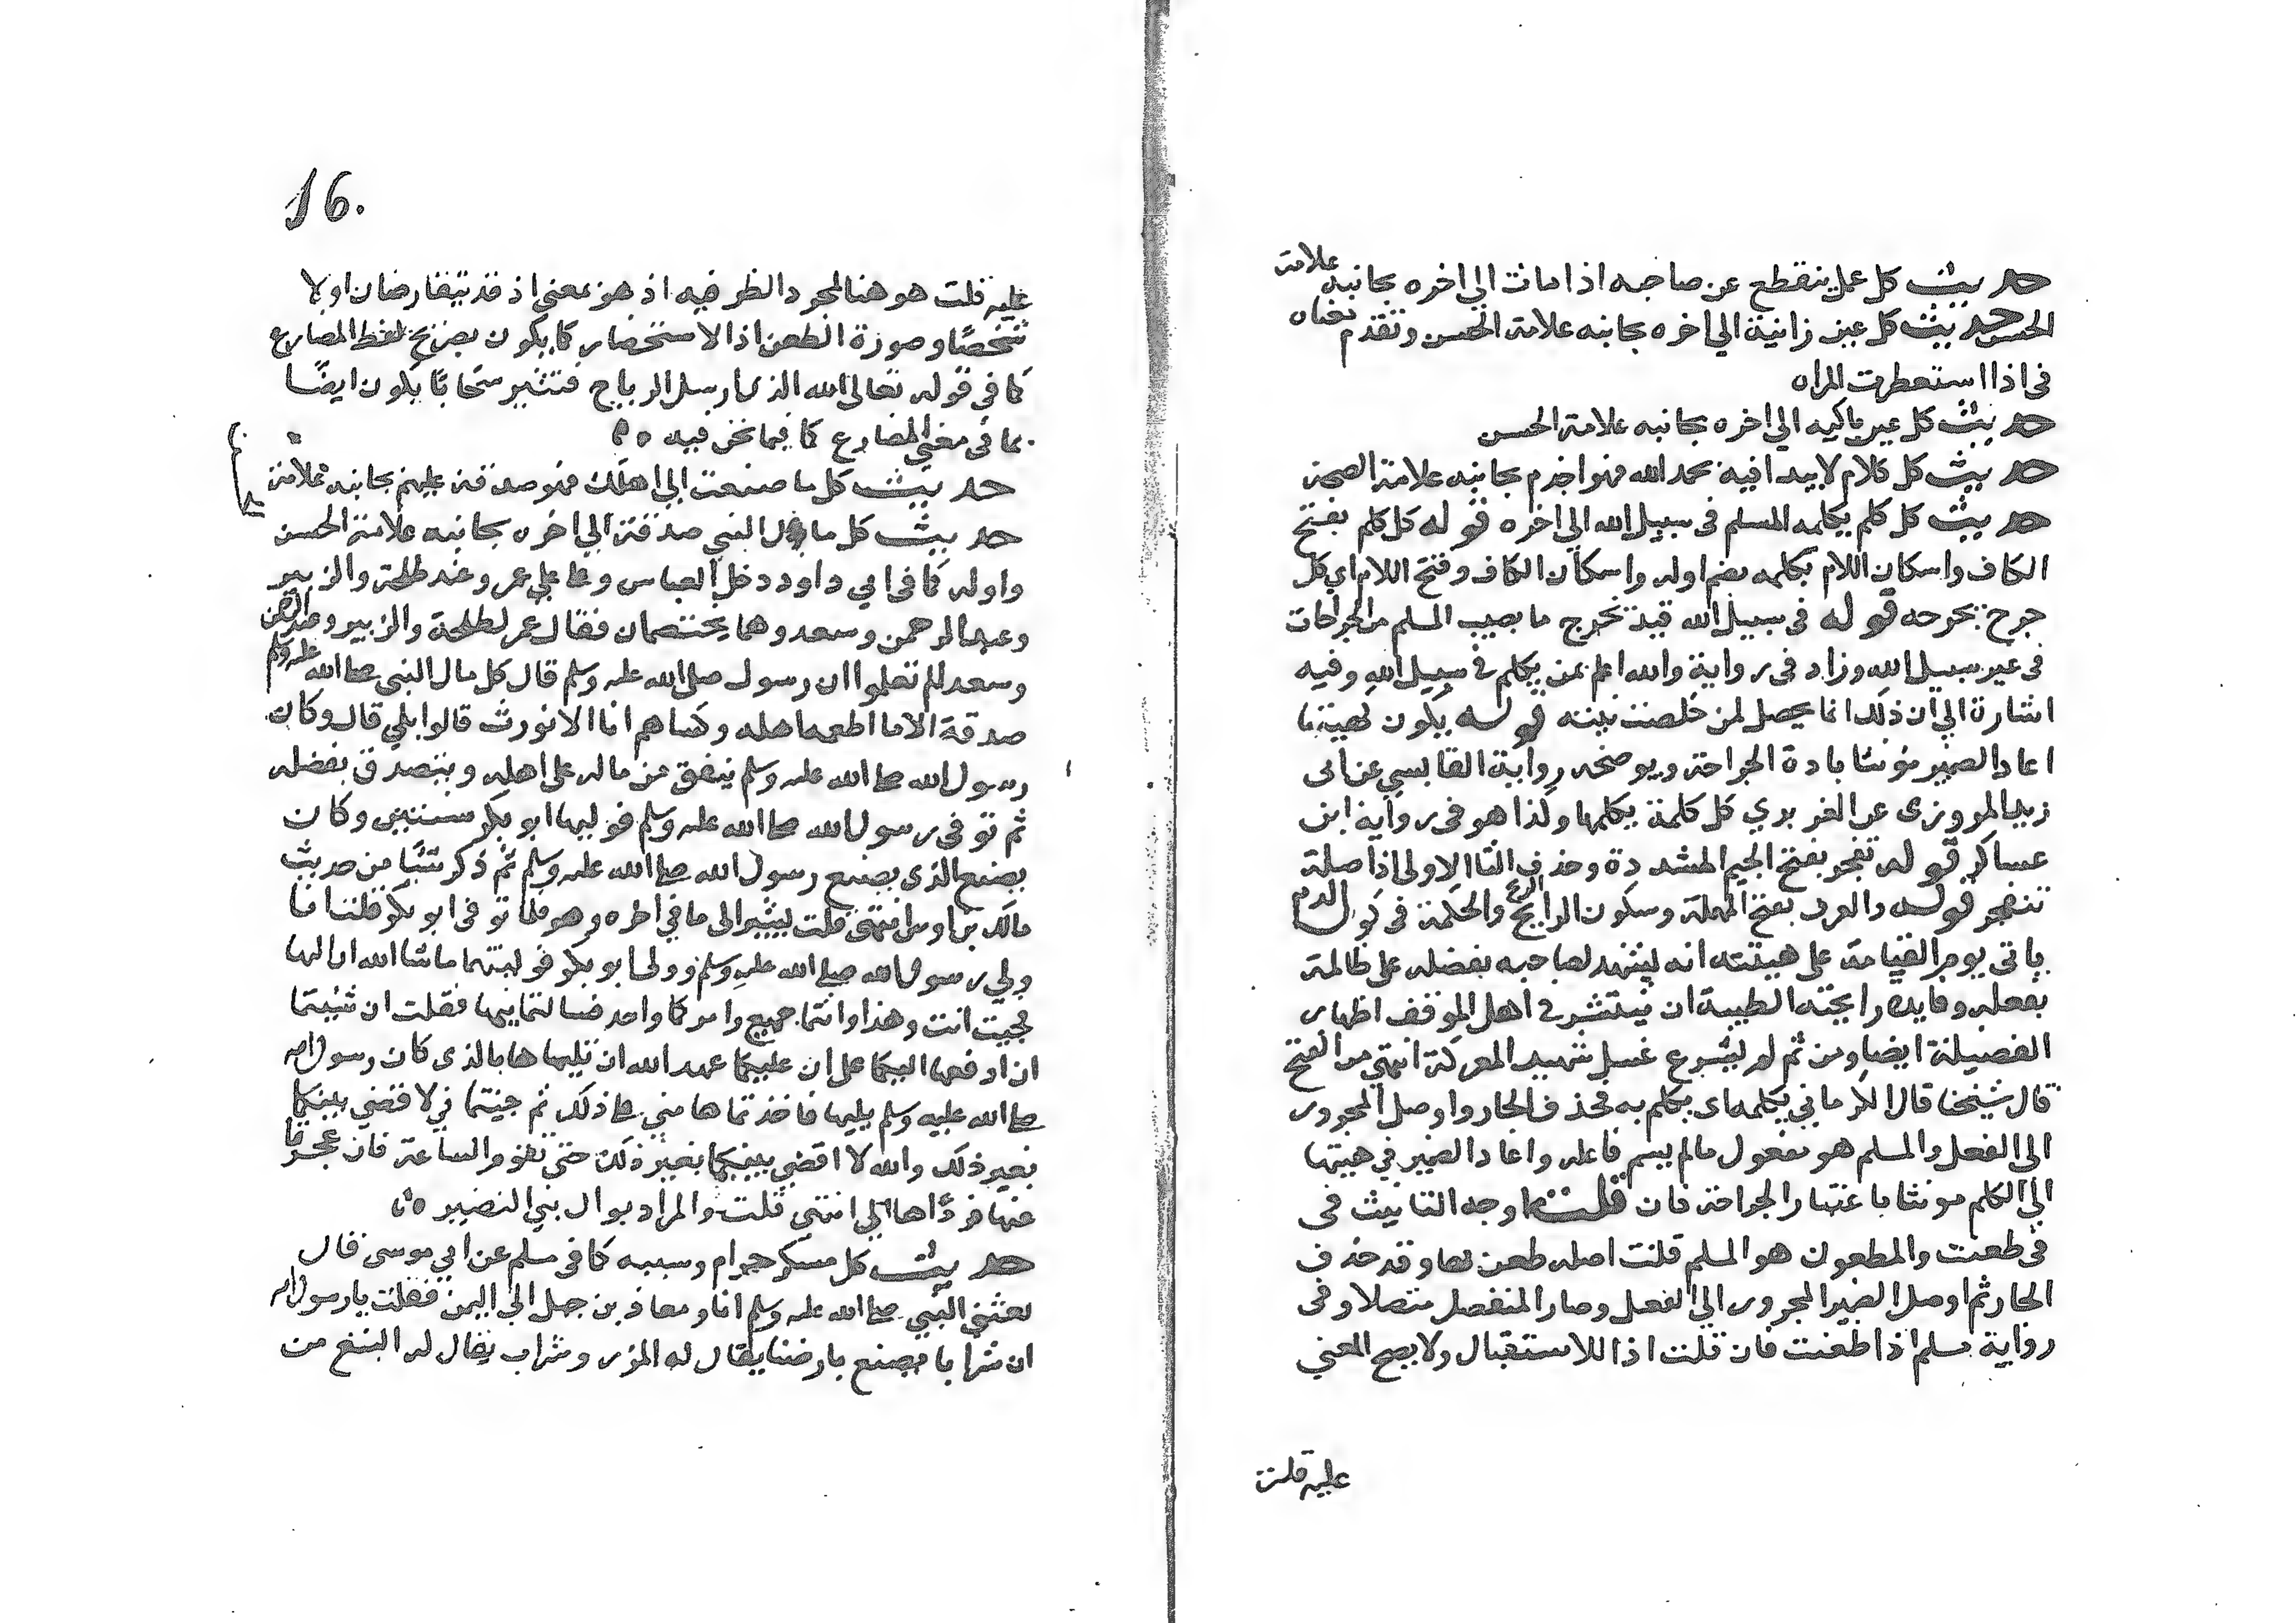 حديث كل عمل ينقطع عن صاحبه اذا مات الي اخره بجانبه علامة
الحسن حديث كل عين زانية الي اخره بجانبه علامة الحسن وتقدم معناه
في اذا استعطرت المراه
حديث كل عين باكيه الي اخره بجانبه علامة الحسن
حديث كل كلام لا يبدا فيه بحمد الله فهو اجذم بجانبه علامة الصحة
حديث كل كلم يكلمه المسلم في سبيل الله الي اخره قوله كل كلم بفتح
الكاف واسكان اللام يكلمه بضم اوله واسكان الكاف وفتح اللام اي كل
جرح يجرحه قوله في سبيل الله قيد يخرج ما يصيب المسلم من الجراحات
في غير سبيل الله وزاد في رواية والله اعلم بمن يكلم في سبيل الله وفيه
اشارة الي ان ذلك انما يحصل لمن خلصت نيته قوله يكون كهيتها
اعاد الضمير مؤنثا بادة الجراحة ويوضحه رواية القابسي عن ابي
زيد المروزي عن الفربري كل كلمة يكلمها وكذا هو في رواية ابن
عساكر قوله تفجر بفتح الجيم المشددة وحذف التا الاولي اذ اصله
تتفجر قوله والعرف بفتح المهملة وسكون الرا الريح والحكمة في كون الدم
ياتي يوم القيامة علي هيئته انه يشهد لصاحبه بفضله علي ظالمه
بفعله وفايدة رايحته الطيبة ان ينتشر في اهل الموقف اظهار
الفضيلة ايضا ومن ثم لم يشرع غسل شهيد المعركة انتهي من الفتح
قال شيخنا قال الكرماني يكلمه اي يكلم به فحذف الجار واوصل المجرور
الي الفعل والمسلم هو مفعول ما لم يسم فاعله واعاد الضمير في هيتها
الي الكلم مونثا باعتبار الجراحة فان قلت ما وجه التانيث في
في طعنت والمطعون هو المسلم قلت اصله طعن بها وقد حذف
الجار ثم اوصل الضمير المجرور الي الفعل وصار المنفصل متصلا وفي
رواية مسلم اذا طعنت فان قلت اذا للاستقبال ولا يصح المعني
عليه قلت
16.
عليه قلت هو هنا لمجرد الظرفيه اذ هو بمعني اذ قد يتقارضان اولا
شخصا وصورة الطعن اذ الاستحضار كما يكون بصريح لفظ المضارع
كما في قوله تعالي الله الذي ارسل الرياح فتثير سحابا يكون ايضا
بما في معني المضارع كما فيما نحن فيه
حديث كل ما صنعت الي اهلك فهو صدقة عليهم بجانبه علامة
حديث كل مال النبي صدقة الي اخره بجانبه علامة الحسن
واوله كما في ابي داود دخل العباس وعلي علي عمر وعنده طلحة والزبير
وعبد الرحمن وسعد وهما يختصمان فقال عمر لطلحة والزبير وعبد الرحمن
وسعد الم تعلموا ان رسول صلي الله عليه وسلم قال كل مال النبي صلي الله عليه وسلم
صدقة الا ما اطعمه اهله وكساهم انا لا نورث قالوا بلي قال وكان
رسول الله صلي الله عليه وسلم ينفق من ماله علي اهله ويتصدق بفضله
ثم توفي رسول الله صلي الله عليه وسلم فوليها ابو بكر سنتين وكان
يصنع الذي يصنع رسول الله صلي الله عليه وسلم ثم ذكر شيا من حديث
مالك بن اوس انتهي قلت يشير الي ما في اخره وهو فلما توفي ابو بكر قلت انا
ولي رسول الله صلي الله عليه وسلم وولي ابو بكر فوليتها ما شا الله ان اليها
فجيت انت وهذا وانتما جميع وامركما واحد فسالتمانيها فقلت ان شيتما
ان ادفعها اليكما علي ان عليكما عهد الله ان تلياها بالذي كان رسول الله
صلي الله عليه وسلم يليها فاخذتماها مني علي ذلك ثم جيتماني لاقضي بينكما
بغير ذلك والله لا اقضي بينكما بغير ذلك حتي تقوم الساعة فان عجزتما
عنها فرداها الي انتهي قلت والمراد بوال بني النضير
حديث كل مسكر حرام وسببه كما في مسلم عن ابي موسي قال
بعثني النبي صلي الله عليه وسلم انا ومعاذ بن جبل الي اليمن فقلت يا رسول الله
ان شرابا يصنع بارضنا يقال له المزر وشراب يقال له البتع من